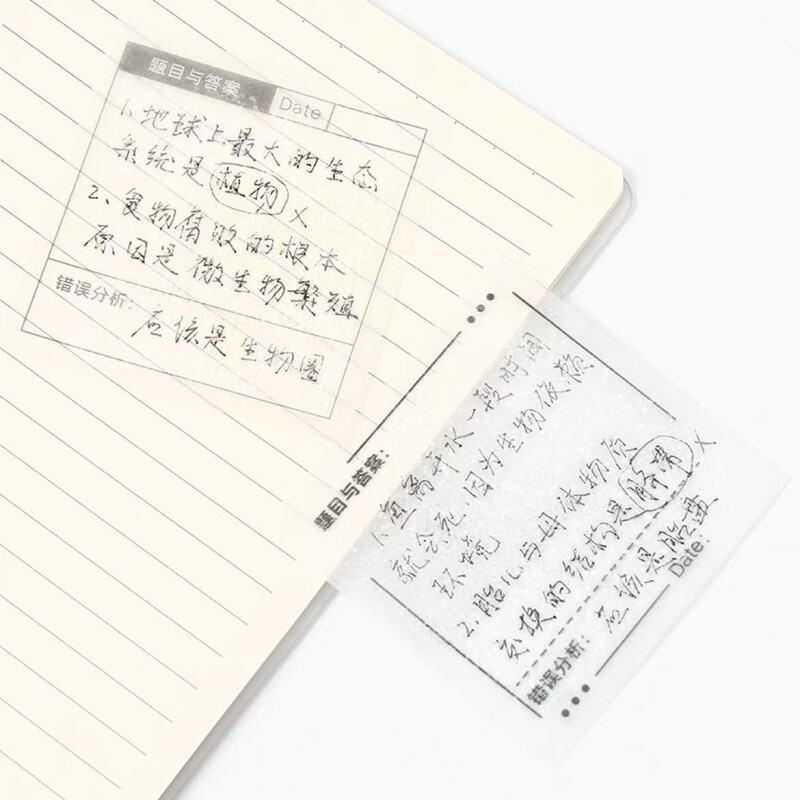 题目与答案
Date
1、地球上最大的生态
系统是植物 ×
2、食物腐败的根本
原因是微生物繁殖
错误分析：
应该是生物圈
题目与答案：
1、鱼离开水一段时间
就会死，因为生物依赖
环境
2、胎儿与母体物质
交换的结构是脐带 ×
错误分析：
应该是胎盘
Date: